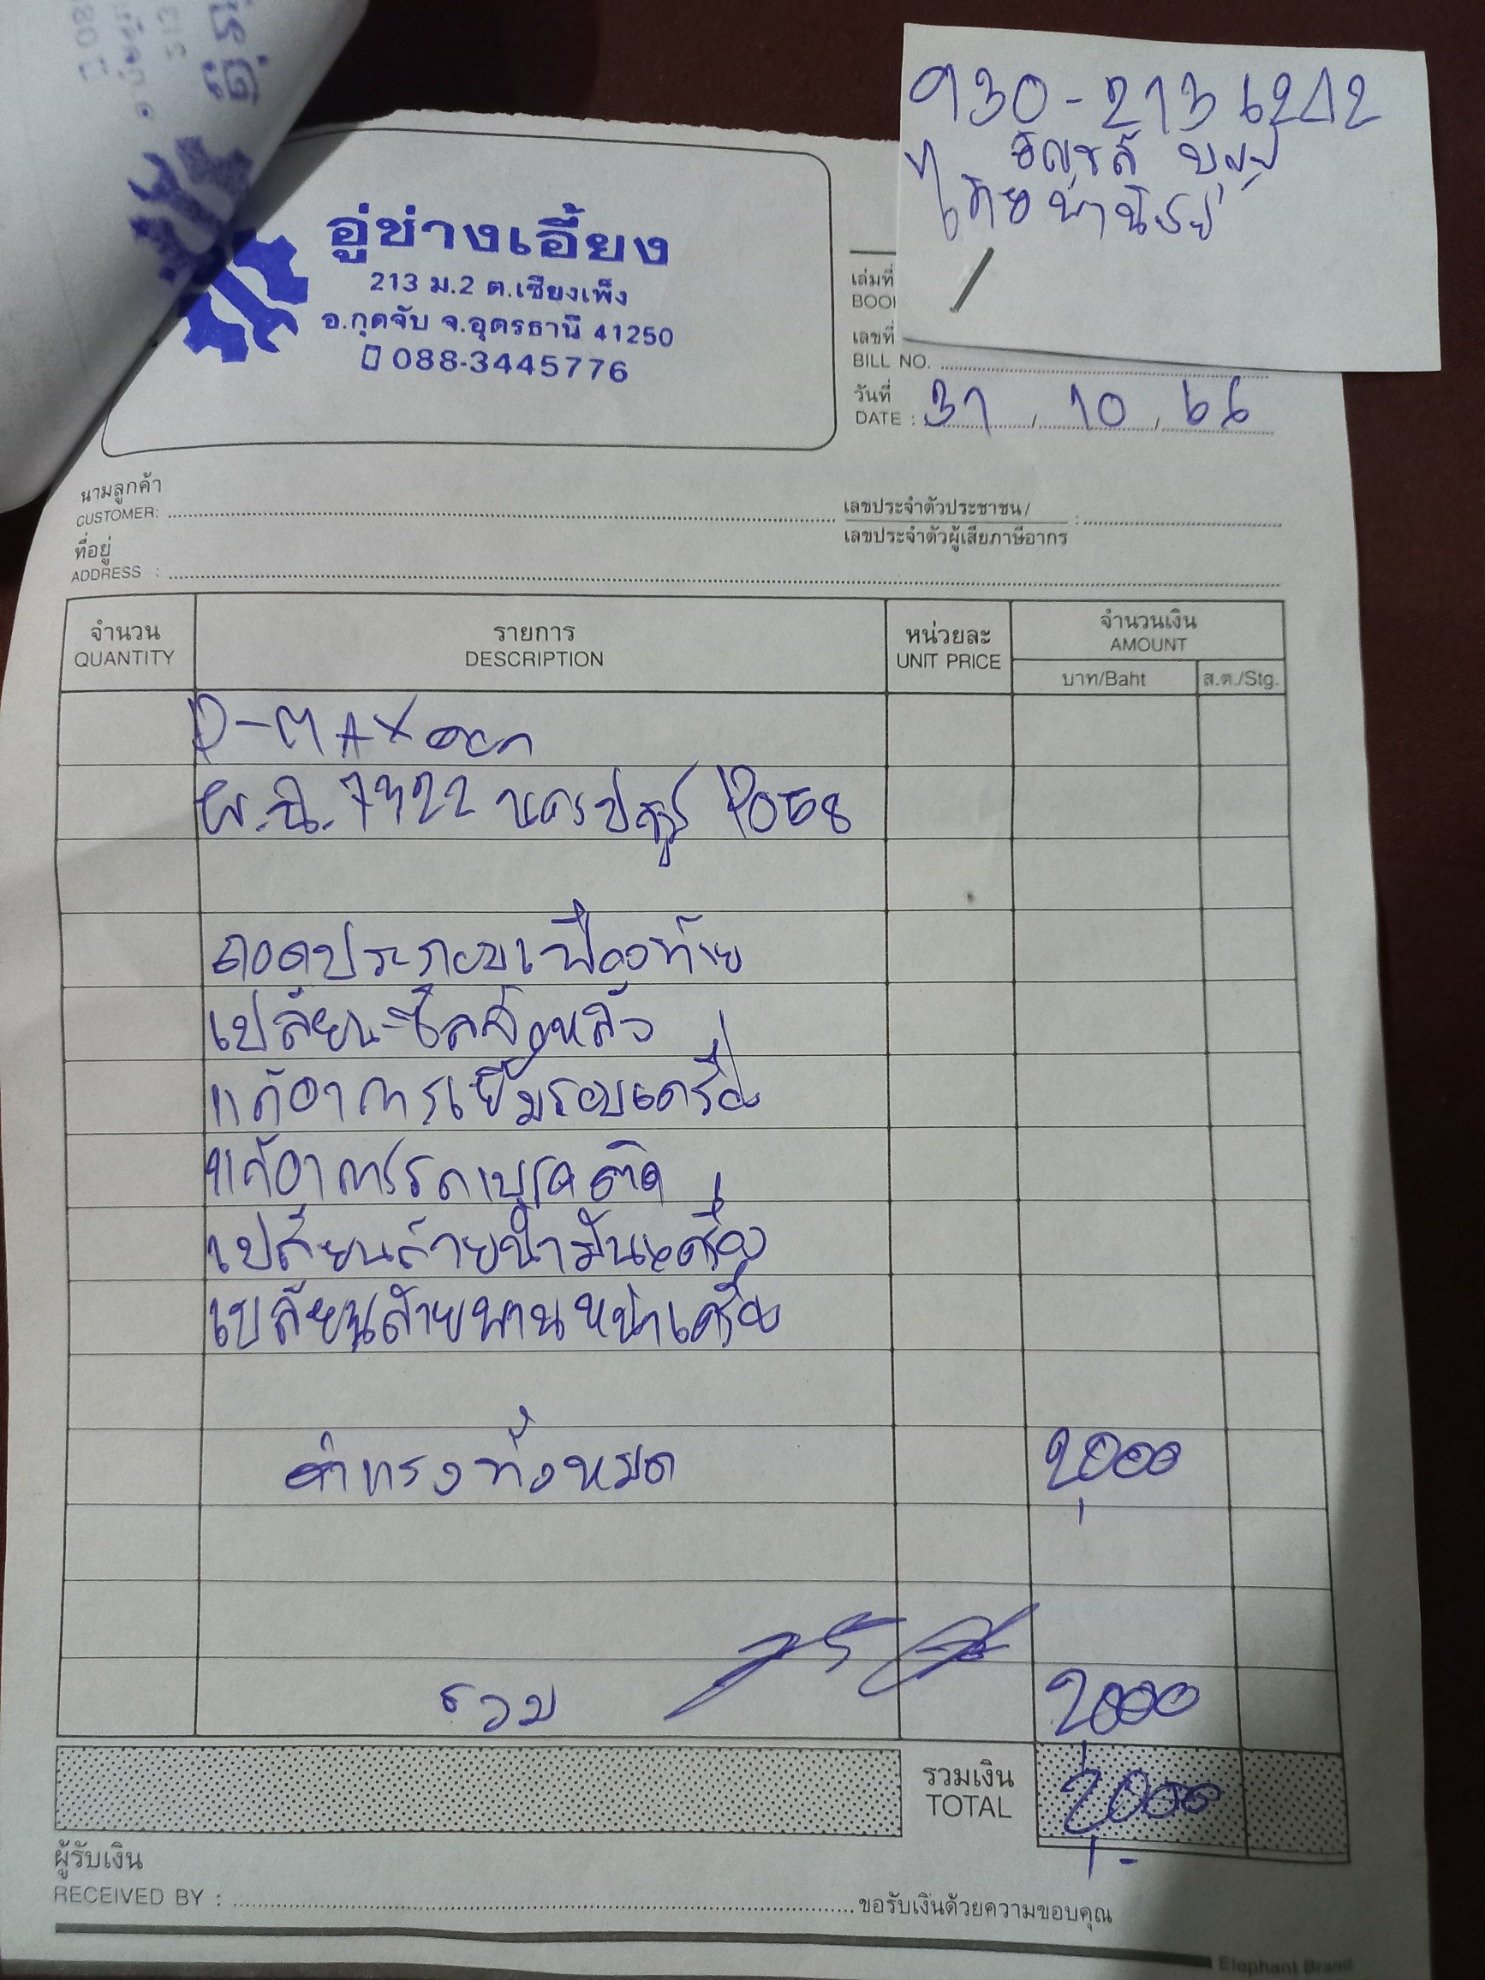 930-2136242
ธัญชลี
ไทยพาณิชย์
อู่ช่างเอี้ยง
213 ม.2 ต.เชียงเพ็ง
อ.กุดจับ จ.อุดรธานี 41250
088-3445776
เล่มที่
เลขที่
BILL NO.
วันที่
DATE : 31 / 10 / 66
นามลูกค้า
CUSTOMER:
เลขประจำตัวประชาชน /
เลขประจำตัวผู้เสียภาษีอากร
ที่อยู่
ADDRESS :
จำนวน รายการ หน่วยละ จำนวนเงิน
QUANTITY DESCRIPTION UNIT PRICE AMOUNT
บาท/Baht ส.ต./Stg.
D-MAX
ผ.ฉ. 7422
ถอดประกอบเฟืองท้าย
เปลี่ยนซีลล้อหลัง
แก้อาการเยิ้มรอบเครื่อง
แก้อาการรถเบรคติด
เปลี่ยนถ่ายน้ำมันเครื่อง
เปลี่ยนสายพานหน้าเครื่อง
ค่าแรงทั้งหมด 2,000
รวม 2,000
รวมเงิน
TOTAL 2,000 -
ผู้รับเงิน
RECEIVED BY : ขอรับเงินด้วยความขอบคุณ
Elephant Brand